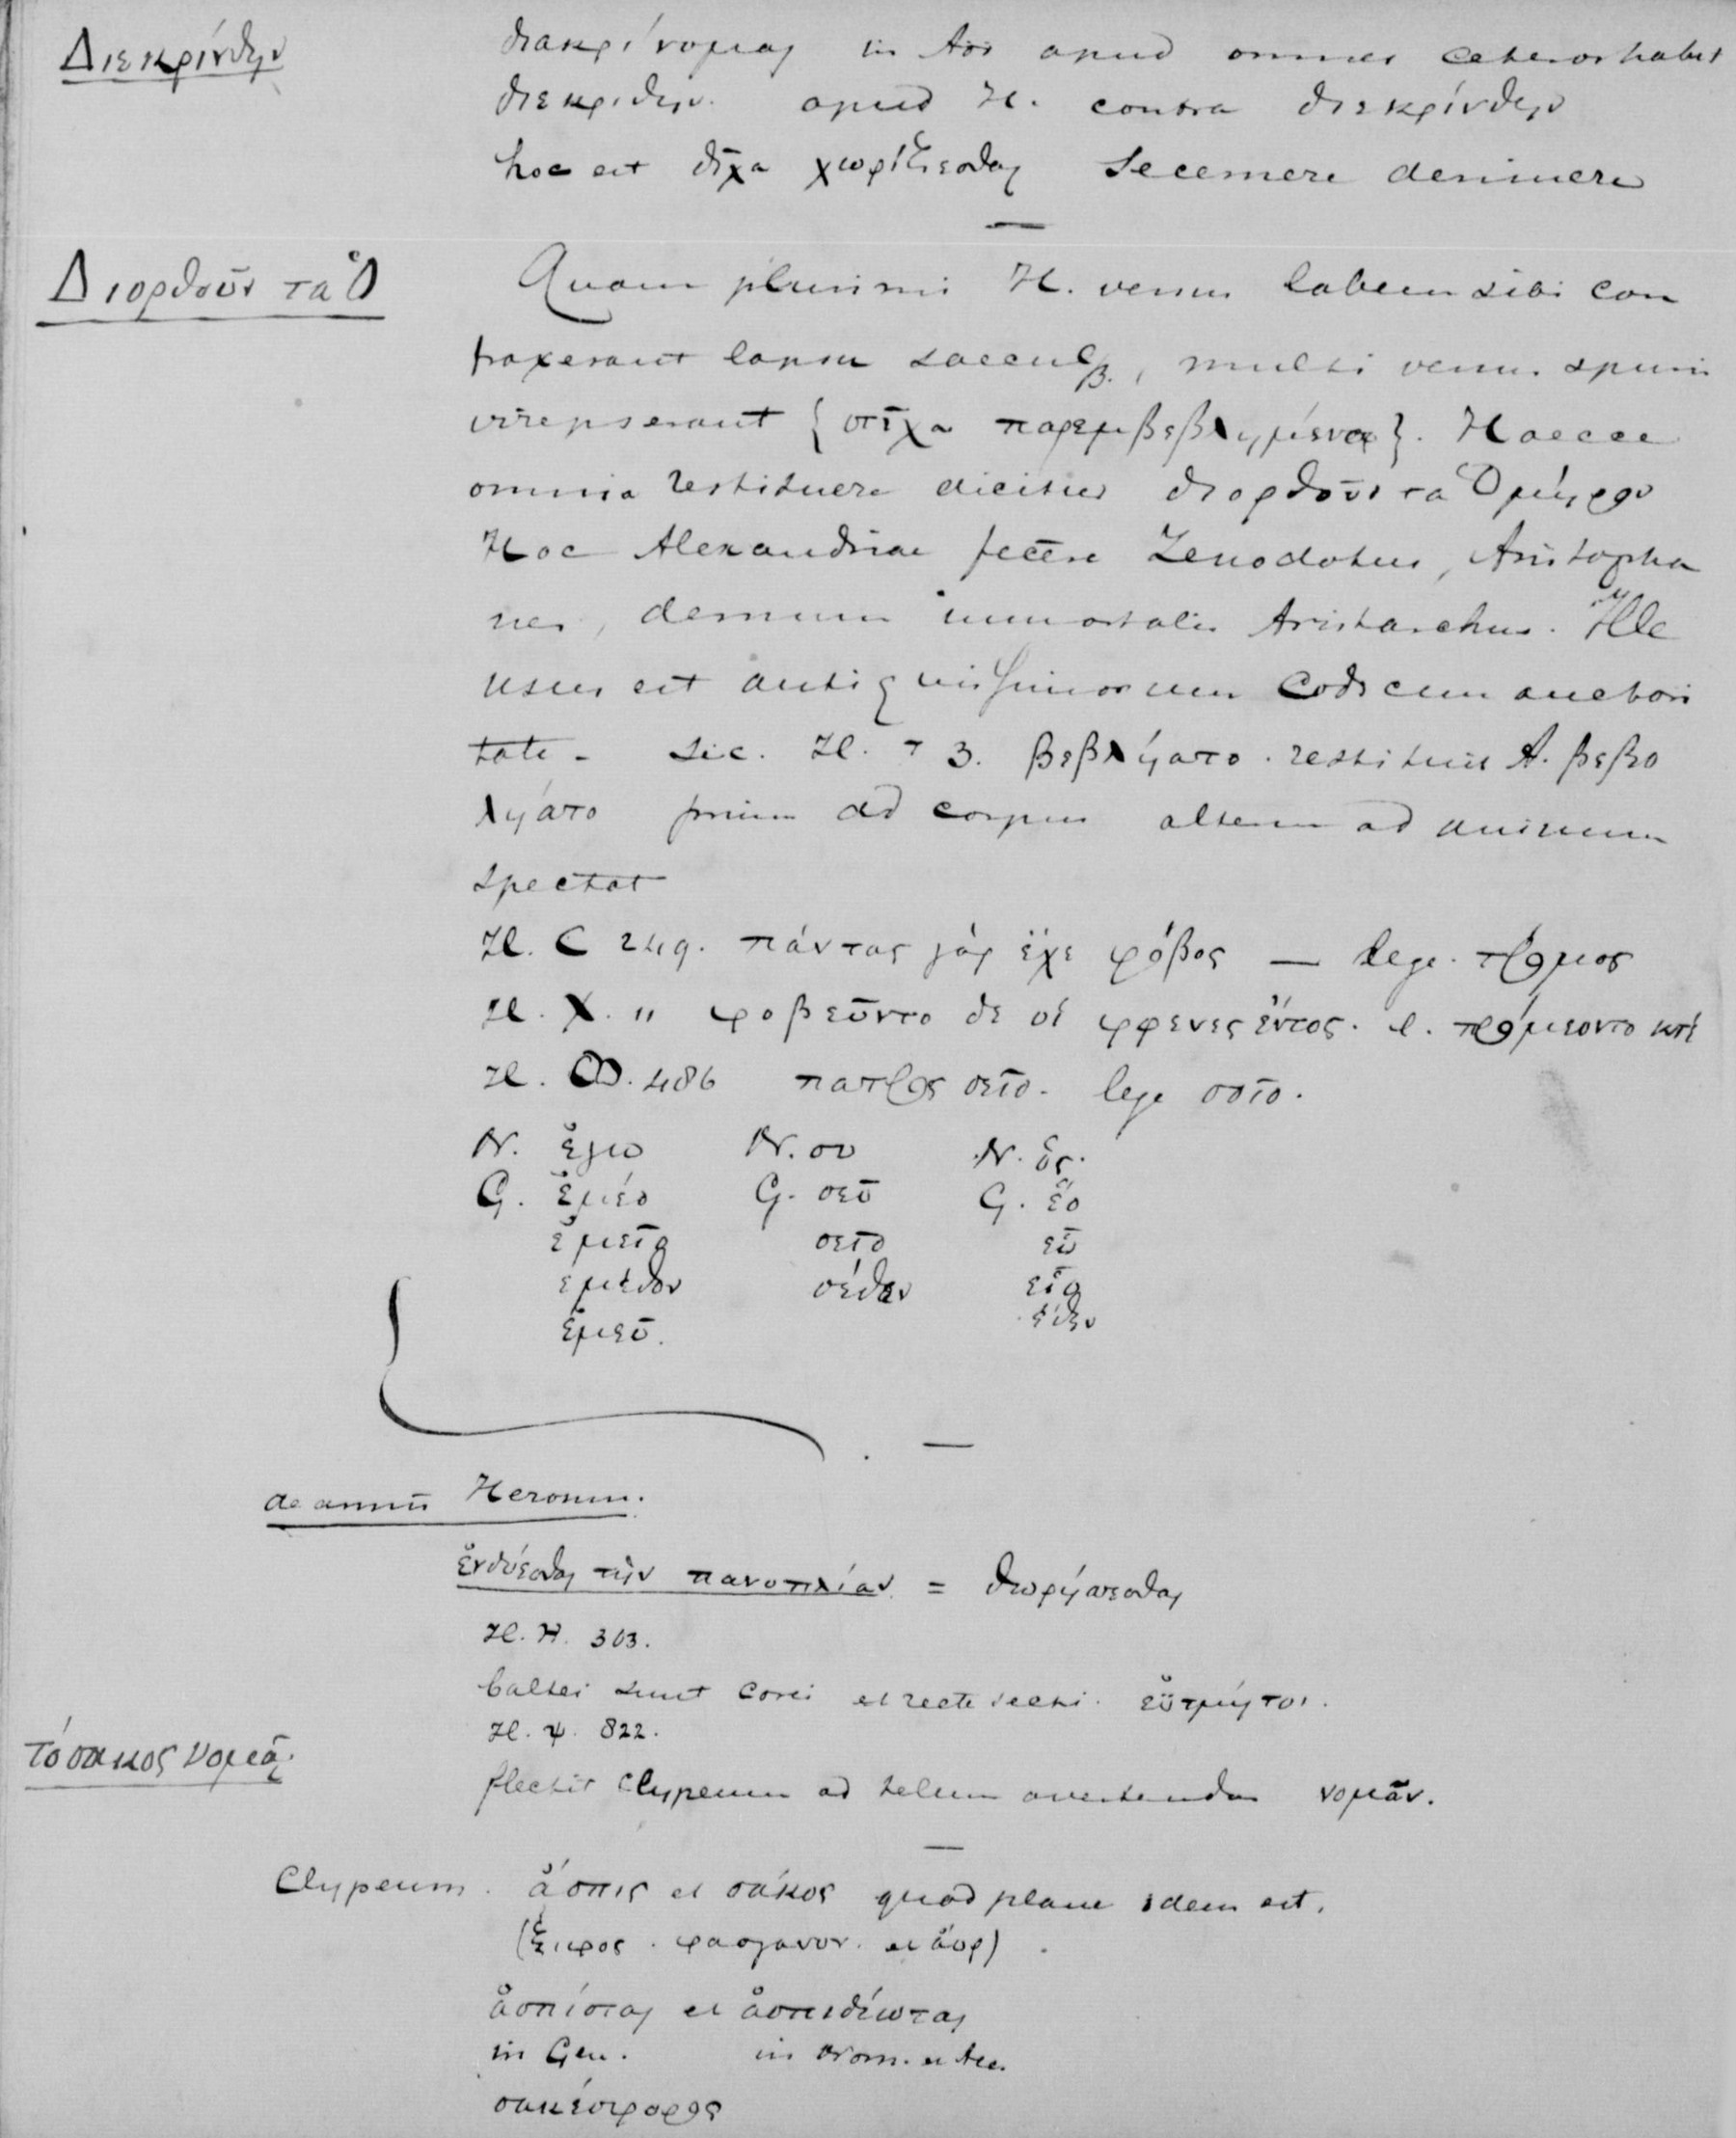 Διεκρίνθην
διακρίνομαι in Aor apud omnes ceteros habet
διεκριθην. apud H. contra διεκρίνθην
hoc est δίχα χωρίζεσθαι secernere derimere
—
Διορθοῦν τα Ὁ
Quam plurimi H. versus labem sibi con
traxerant lapsu saecul., multi versus spurii
irrepserant { στίχα παρεμβεβλημένα }. Haecce
omnia restituere dicitur διορθοῦν τα Ὁμήρου
Hoc Alexandriae fecere Zenodotus, Aristopha
nes, demum immortalis Aristarchus. Ille
usus est antiquissimorum Codicum auctori
tate - sic. Il. 3. βεβλήατο. restituit A. βεβο
λήατο primum ad corpus alterum ad animum
spectat
Il. C 249. πάντας γάρ ἔχε φόβος — lege. τρόμος
Il. X. 11 φοβεῦντο δε οἱ φρενες ἔντος. l. τρόμεοντο κτἑ
Il. Ω. 486 πατρος σεῖο. lege σοῖο.
N. ἔγω N. συ N. ὅς.
G. ἐμέο G. σεῦ G. ἕο
ἐμεῖο σεῖο εὗ
ἐμέθεν σέθεν εἷο
ἐμεῦ. ἕθεν
—
de armis Heroum.
ἐνδύεσθαι τὴν πανοπλίαν = θωρήσσεσθαι
Il. H. 303.
baltei sunt corei et recte secti. εὔτμητοι.
Il. ψ. 822.
τό σακος νομᾶν
flectit clypeum ad telum avertendum νομᾶν.
—
Clypeum. ἄσπις et σάκος quod plane idem est.
(ξιφος. φασγανον. et ἄορ).
ἀσπίσται et ἀσπιδίωται
in Gen. in Nom. et Acc.
σακέσφορος